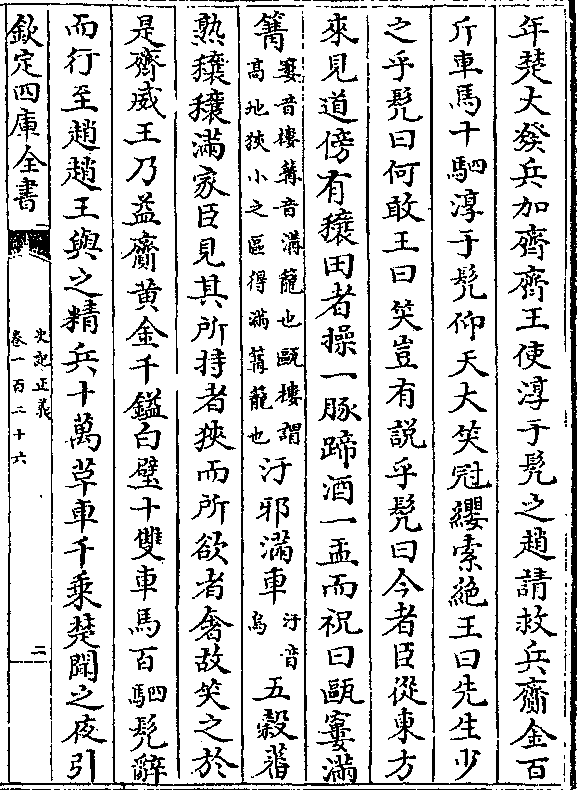 年楚大發兵加齊齊王使淳于髠之趙請救兵齎金百
斤車馬十駟淳于髠仰天大笑冠纓索絶王曰先生少
之乎髠曰何敢王曰笑豈有説乎髠曰今者臣從東方
來見道傍有穰田者操一豚蹄酒一盂而祝曰甌窶滿
篝窶音樓篝音溝籠也甌樓謂高地狹小之區得滿篝籠也汙邪滿車汙音烏五穀蕃
熟穰穰滿家臣見其所持者狹而所欲者奢故笑之於
是齊威王乃益齎黄金千鎰白璧十雙車馬百駟髠辭
而行至趙趙王與之精兵十萬革車千乘楚聞之夜引
欽定四庫全書
史記正義
卷一百二十六
二